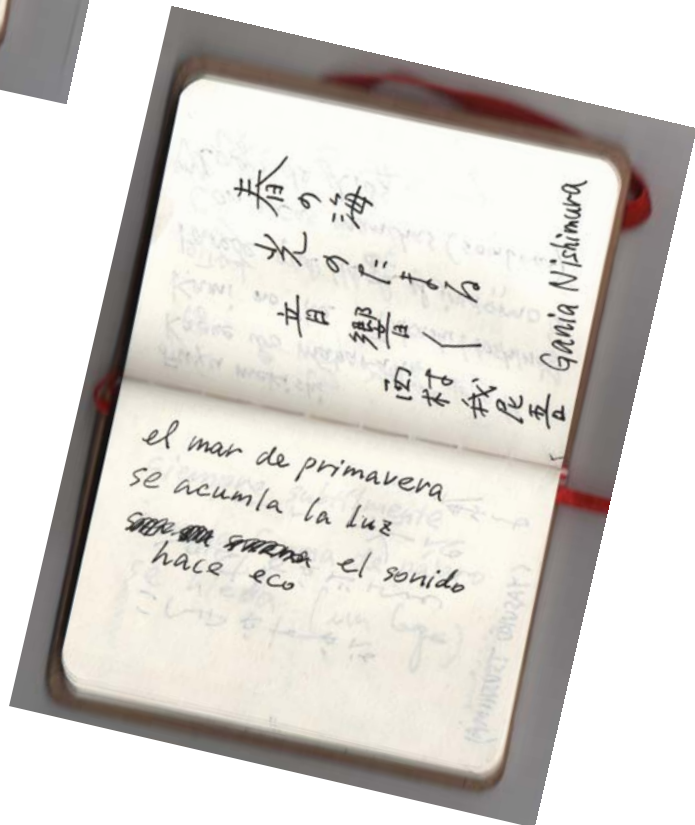 春の海
光のたまる
音響く
西村我尼吾
Gania Nishimura
el mar de primavera
se acumla la luz
el sonido
hace eco